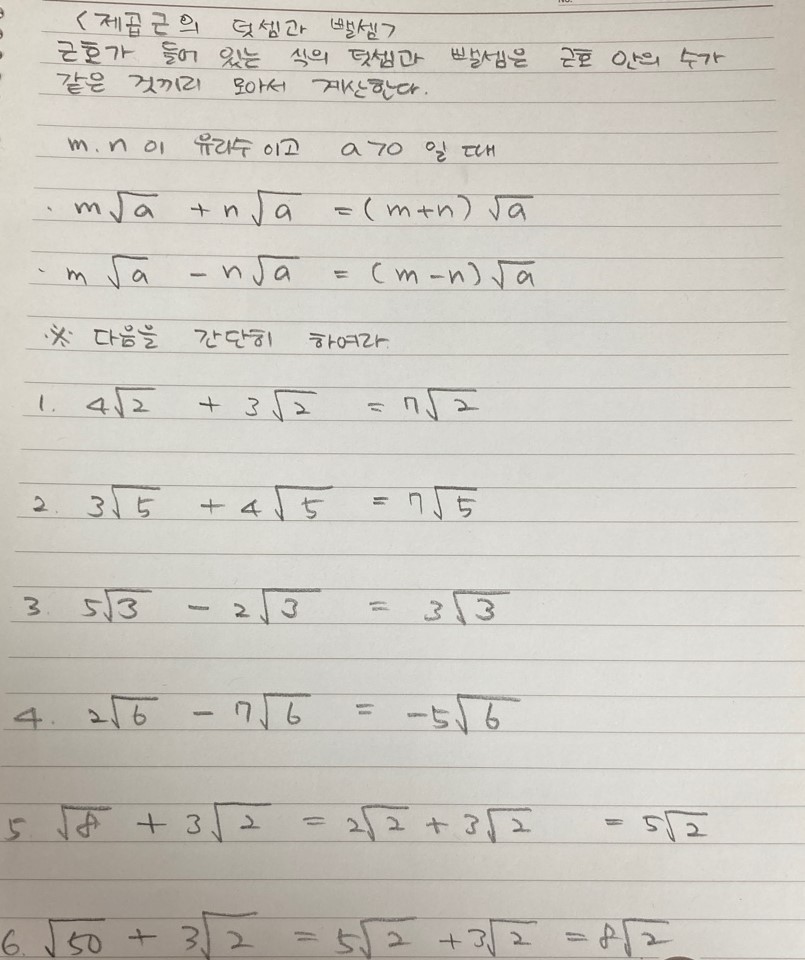 <제곱근의 덧셈과 뺄셈>
근호가 들어 있는 식의 덧셈과 뺄셈은 근호 안의 수가
같은 것끼리 모아서 계산한다.
m.n이 유리수이고 a>0 일 때
· m√a + n√a = (m+n)√a
· m√a - n√a = (m-n)√a
※ 다음을 간단히 하여라.
1. 4√2 + 3√2 = 7√2
2. 3√5 + 4√5 = 7√5
3. 5√3 - 2√3 = 3√3
4. 2√6 - 7√6 = -5√6
5. √8 + 3√2 = 2√2 + 3√2 = 5√2
6. √50 + 3√2 = 5√2 + 3√2 = 8√2